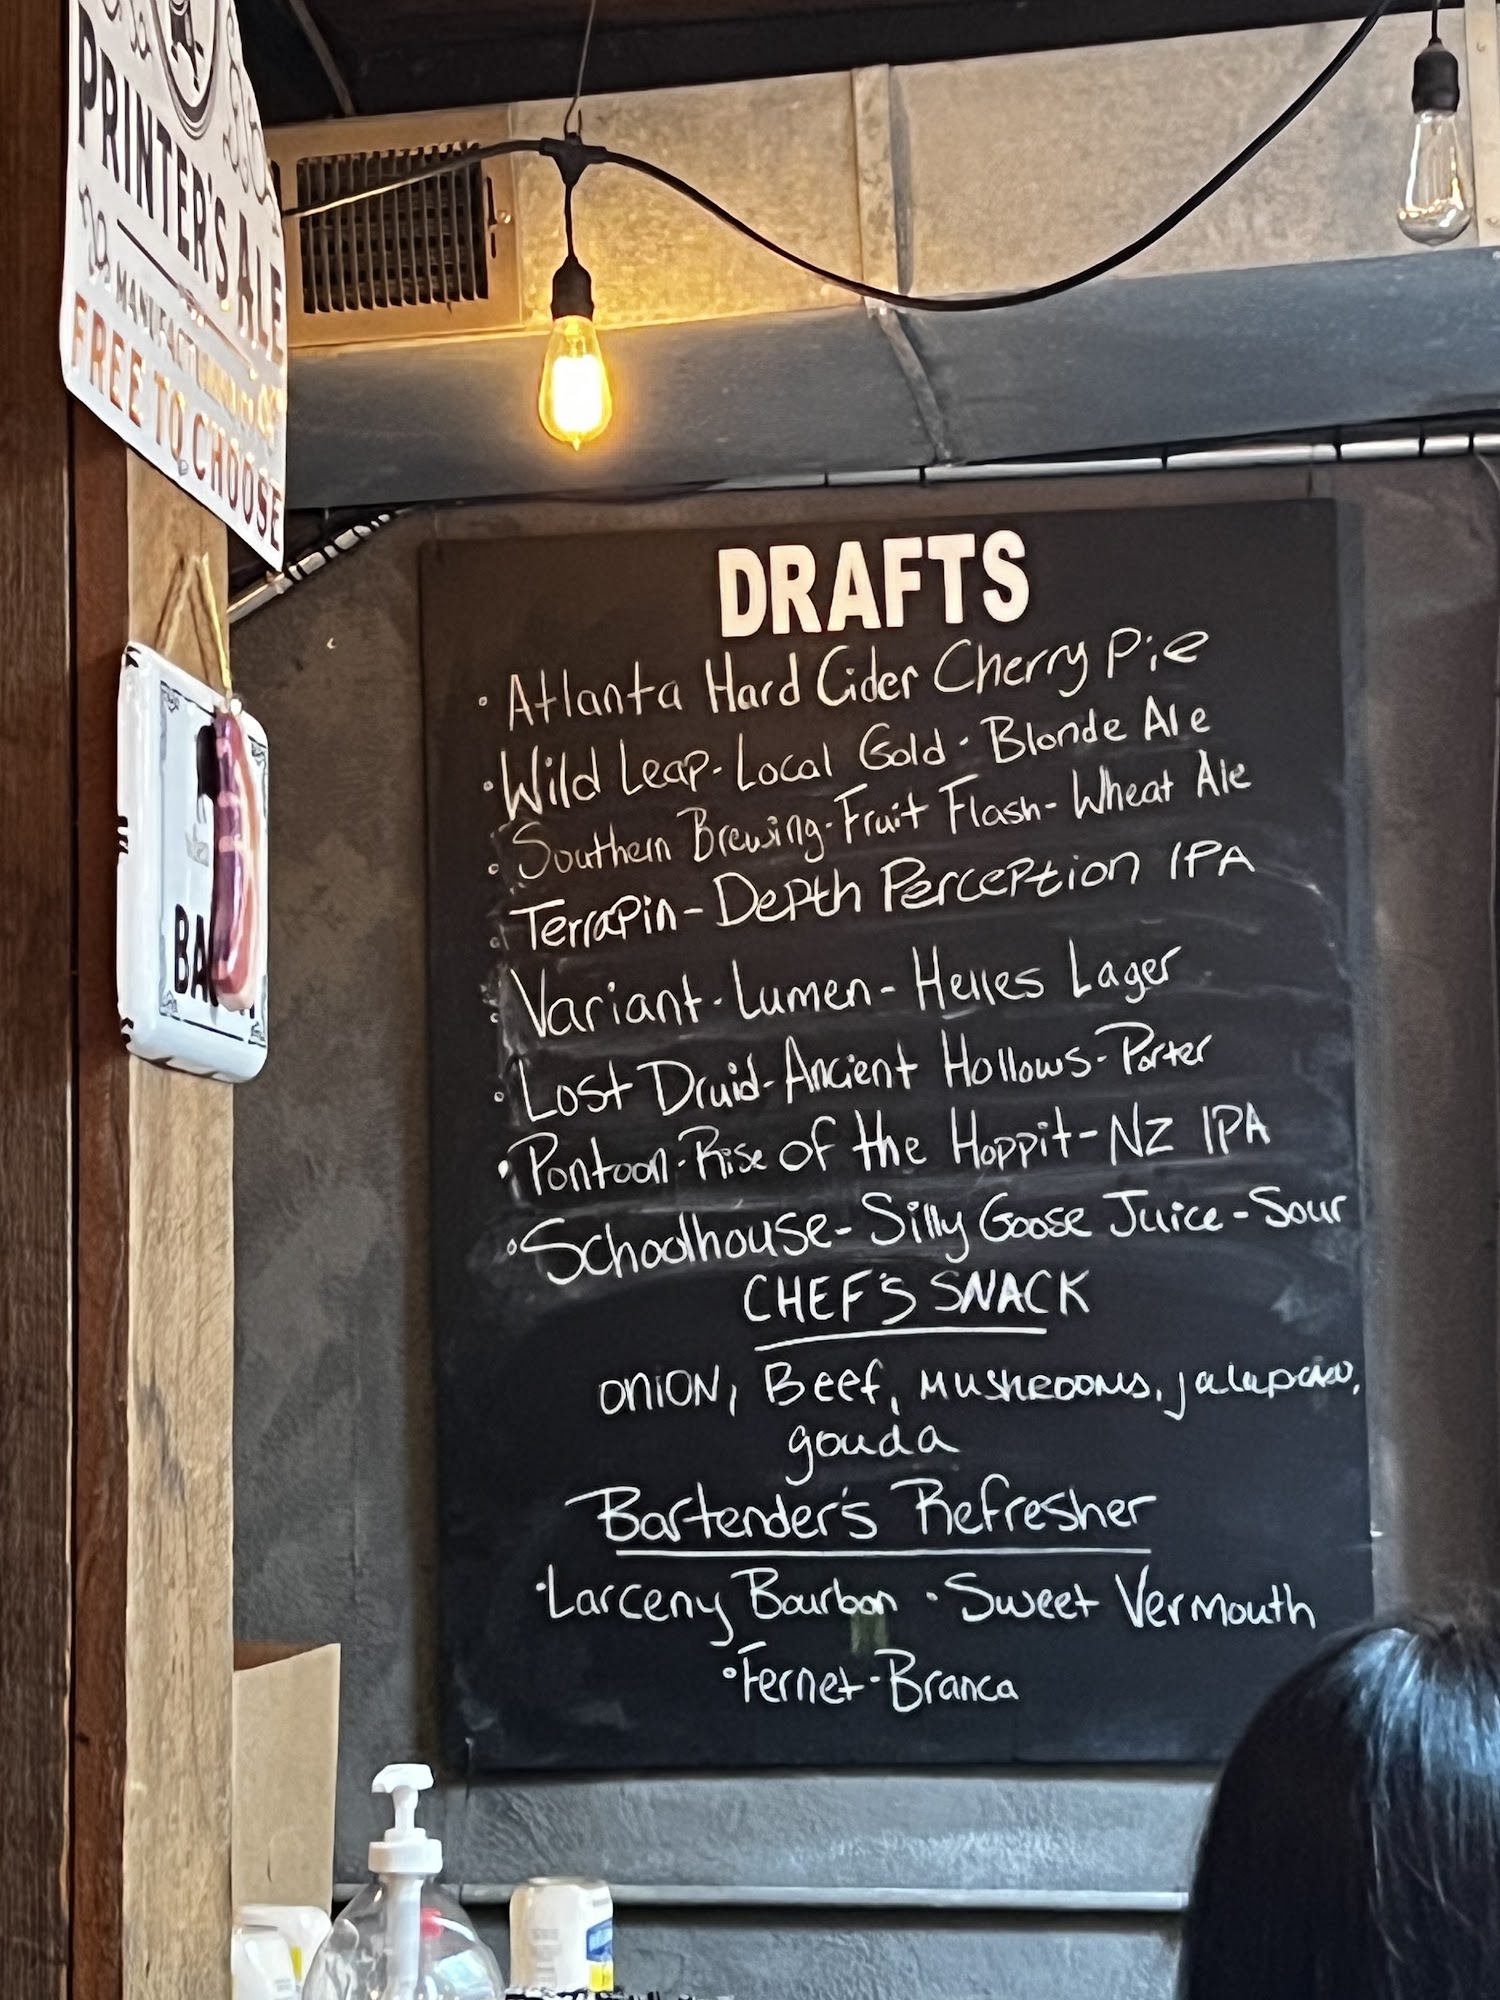 PRINTER'S ALE
MANUFACTURING CO
FREE TO CHOOSE
DRAFTS
• Atlanta Hard Cider Cherry Pie
• Wild Leap - Local Gold - Blonde Ale
• Southern Brewing - Fruit Flash - Wheat Ale
• Terrapin - Depth Perception IPA
• Variant - Lumen - Helles Lager
• Lost Druid - Ancient Hollows - Porter
• Pontoon - Rise of the Hoppit - NZ IPA
• Schoolhouse - Silly Goose Juice - Sour
CHEF'S SNACK
ONION, Beef, MUSHROOMS, jalapeno,
gouda
Bartender's Refresher
• Larceny Bourbon • Sweet Vermouth
• Fernet - Branca